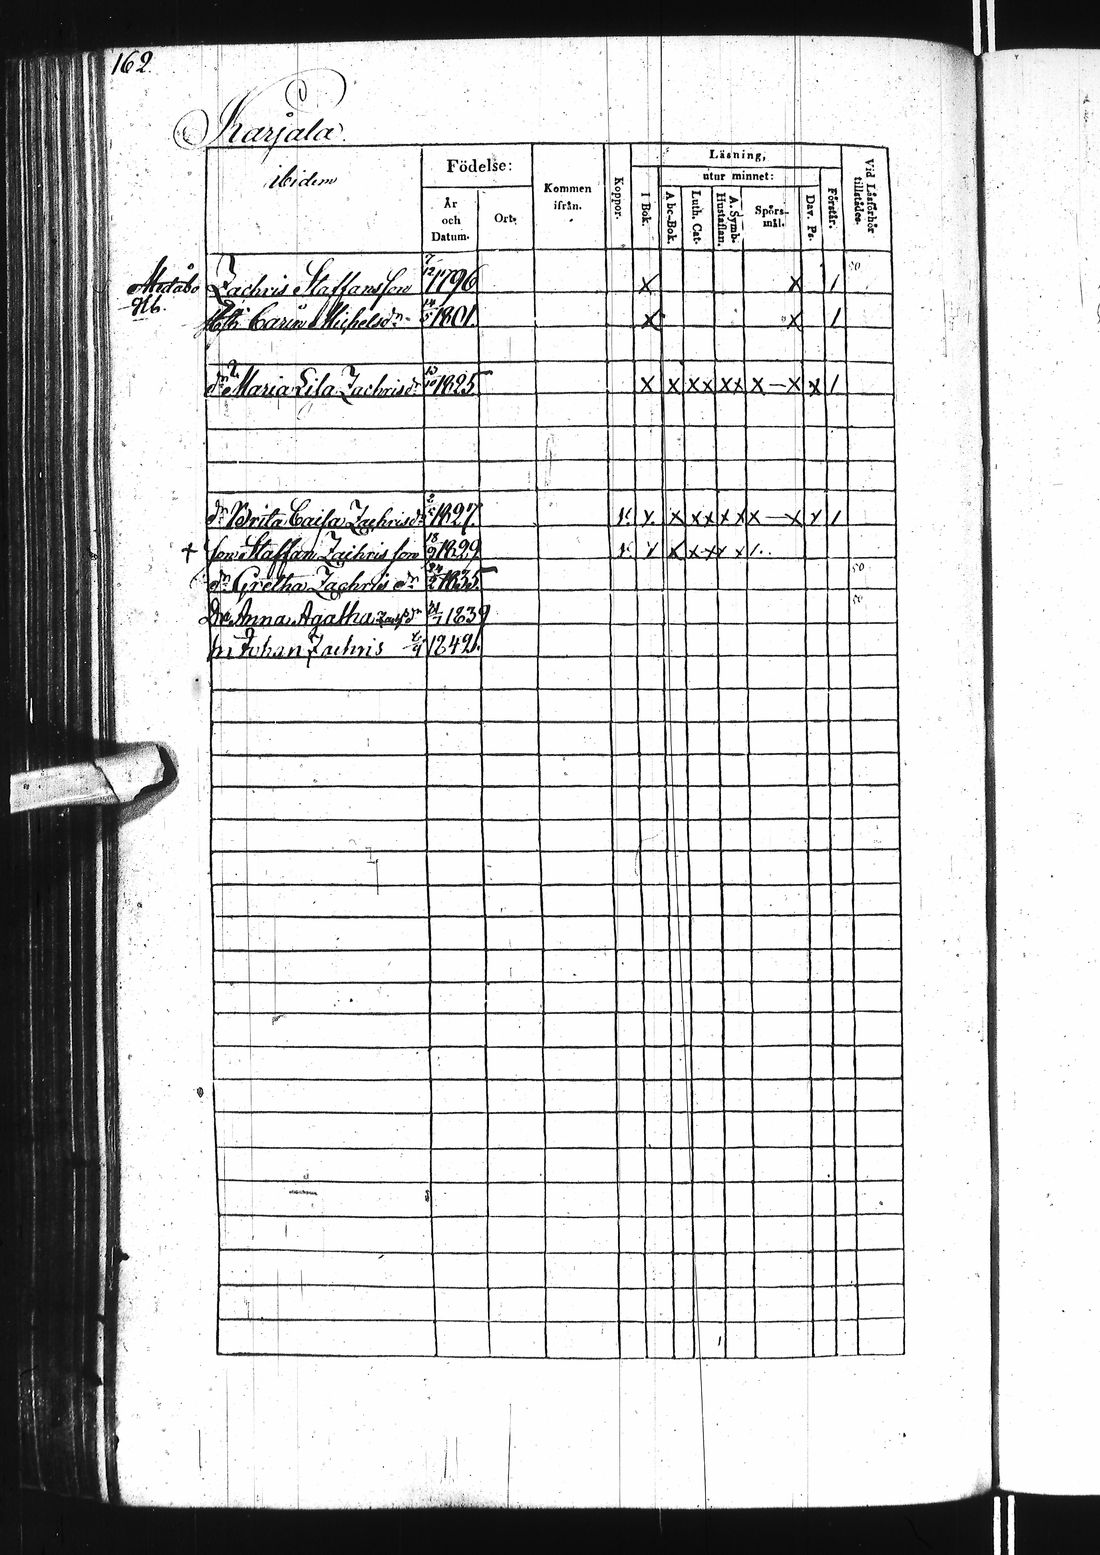 162.
Karjala.
ibidem
Födelse:
År
och
Datum.
Ort.
Kommen
ifrån.
Koppor.
Läsning,
utur minnet:
I Bok.
Abc-Bok.
Luth. Cat.
A. Symb.
Hustaflan.
Spörs-
mål.
Dav. Ps.
Förstår.
Vid Läsförhör
tillstädes.
Zachris Staffansson 7/12 1796 x x 1 50
Carin Michelsdr 14/5 1801. x x 1
dr Maria Lisa Zachrisdr 1825 x x xx xx x — x x 1
dr Brita Caisa Zachrisdr 1827. v. x x xx xx x — x x 1
+ son Staffan Zachrisson 18/9 1829 v. x x x x x x 1.
dr Gretha Zachris dr 24/2 1835 50
Dr Anna Agatha Zachsdr 21/7 1839 50
Johan Zachris 1842.